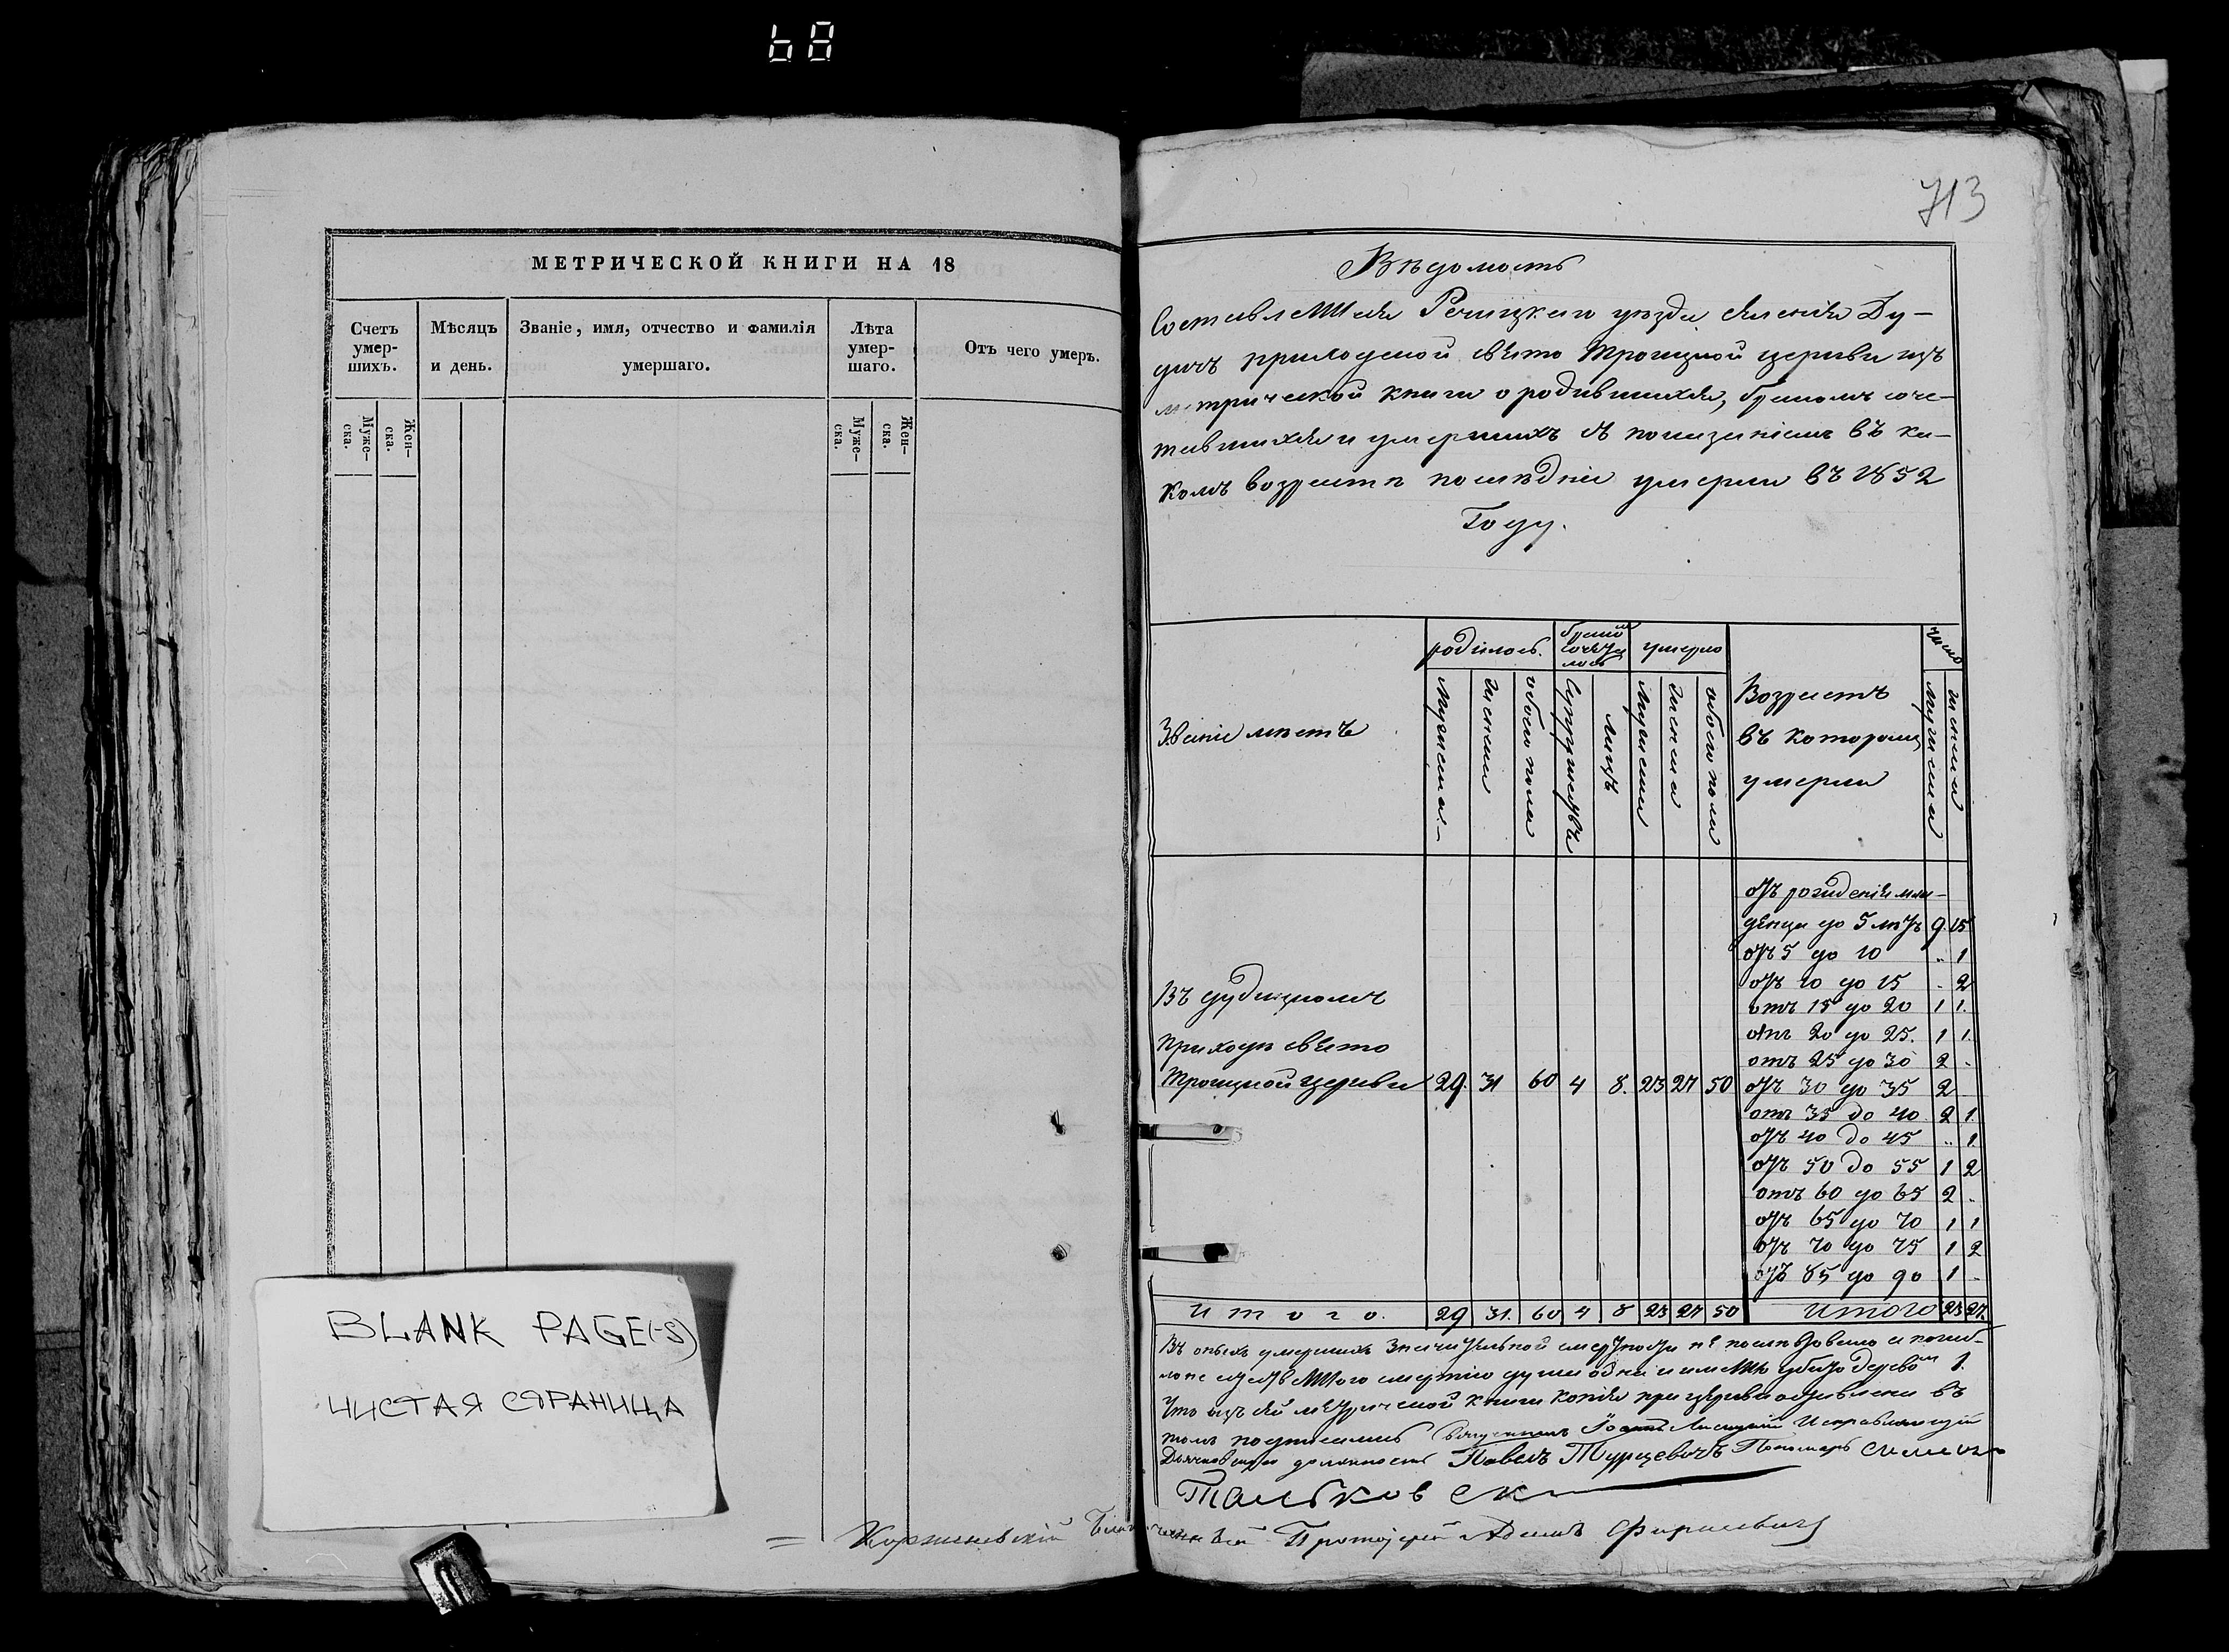 68
МЕТРИЧЕСКОЙ КНИГИ НА 18
Счетъ умер-шихъ.
Мѣсяцъ и день.
Званіе, имя, отчество и фамилія умершаго.
Лѣта умер-шаго.
Отъ чего умеръ.
Муже-ска.
Жен-ска.
Муже-ска.
Жен-ска.
BLANK PAGE(-S)
ЧИСТАЯ СТРАНИЦА
713
Вѣдомость
Составленная Речицкаго уѣзда селенія Ду-
дичъ приходской свято Троицкой церкви изъ
метрической книги о родившихся, бракомъ соче-
тавшихся и умершихъ съ показаніемъ въ ка-
комъ возрастѣ послѣдніе умерли въ 1852
Году.
Званіе мѣстъ
родилось.
бракомъ сочеталось
умерло
Возрастъ
въ которомъ
умерли
число
Мужеска
женска
обоего пола
Супружествъ
лицъ
Мужеска
женска
обоего пола
мужеска
женска
отъ рожденія мла-
денца до 5 лѣтъ 9 15
отъ 5 до 10 .. 1
отъ 10 до 15 .. 2
отъ 15 до 20 1 1.
отъ 20 до 25. 1 1.
отъ 25 до 30 2 -
отъ 30 до 35 2
отъ 35 до 40 2 1.
отъ 40 до 45 .. 1.
отъ 50 до 55 1 2
отъ 60 до 65 2 .
отъ 65 до 70 1 1
отъ 70 до 75 1 2
отъ 85 до 90 1 -
Въ дудицкомъ
приходѣ свято
Троицкой церкви 29. 31 60 4 8. 23 27 50
итого. 29 31. 60 4 8 23 27 50 итого 23 27.
Въ оныхъ умершихъ значительной смертности не послѣдовало и погиб-
ло не естественного смертію душа одна и именно убито деревомъ 1.
Что изъ сей метрической книги копія при церкви оставлена въ
томъ подписались Священникъ Исправляющій
Дьячковскую должность Павелъ Турцевичъ Пономарь
Тальковск
Благочинный Протоіерей Адамъ